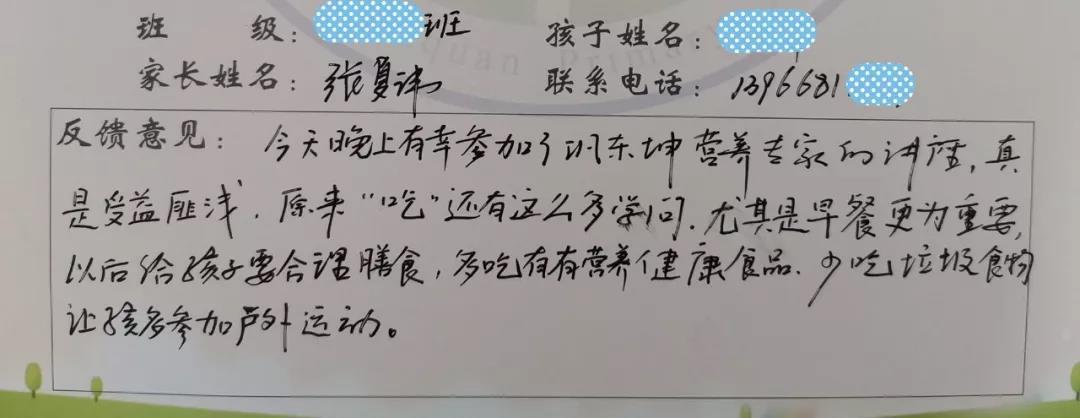 班 级: 班 孩子姓名:
家长姓名: 张夏沛 联系电话: 1396681
quan Primary
反馈意见: 今天晚上有幸参加了东坤营养专家的讲座,真
是受益匪浅,原来“吃”还有这么多学问.尤其是早餐更为重要,
以后给孩子要合理膳食,多吃有有营养健康食品.少吃垃圾食物
让孩多参加户外运动。